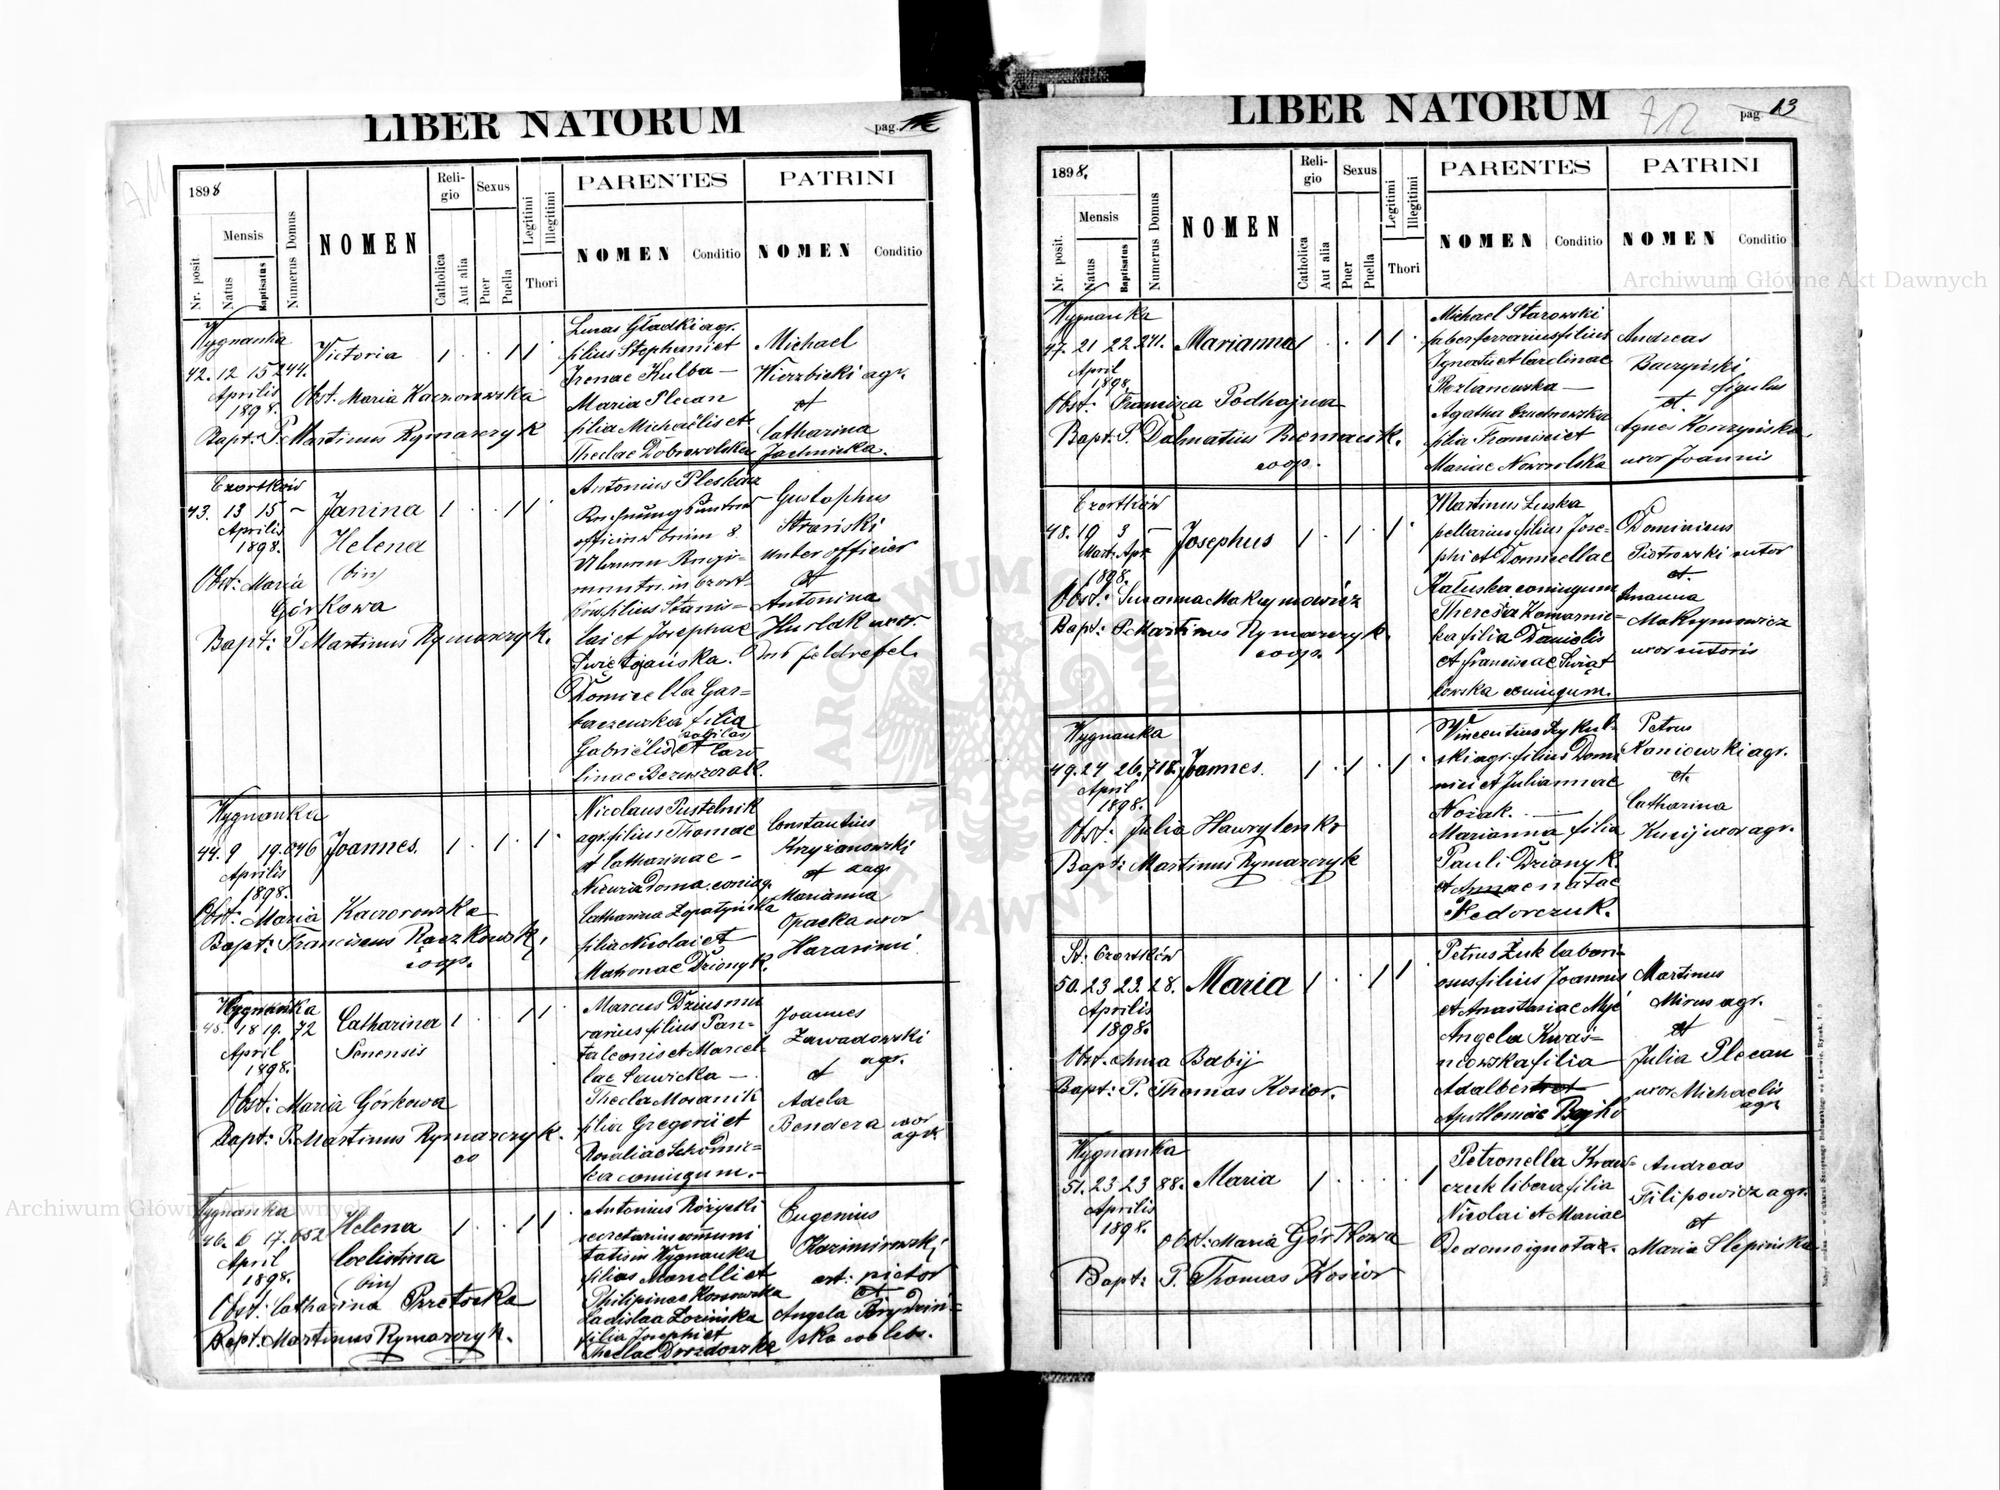 LIBER NATORUM
pag.
1898
Mensis
Nr. posit
Natus
Baptisatus
Numerus Domus
NOMEN
Religio
Catholica
Aut alia
Sexus
Puer
Puella
Legitimi
Illegitimi
Thori
PARENTES
NOMEN
Conditio
PATRINI
NOMEN
Conditio
Wygnanka
42. 12 15 244.
Aprilis
1898.
Victoria
1 . . 1 1 .
Obst. Maria Kaczorowska
Bapt: P. Martinus Rymarczyk
Lucas Gładki agr.
filius Stephani et
Irenae Kulba —
Maria Plecan
filia Michaëlis et
Theclae Dobrowolska
Michael
Wierzbicki agr.
et
Catharina
Jachnicka.
Czortków
43. 13 15 —
Aprilis
1898.
Janina
Helena
(bin)
1 . . 1 1 .
Obst: Maria
Górkowa
Bapt: P Martinus Rymarczyk.
Antonius
officier beim 8.
in Czort-
ków, filius Stanis-
lai et Josephae
Świętojańska.
Domicella Gar-
baczewska filia
Gabriëlis et Caro
linae
Gustaphus
Strański
unter officier
et
Antonina
Kurlak uxor
Wygnanka
44. 9 19. 046
Aprilis
1898.
Joannes.
1 . 1 . 1 .
Obst: Maria Kaczorowska
Bapt: Franciscus Raczkowski,
coop.
Nicolaus Pustelnik
agr. filius Thomae
et Catharinae —
Catharina Łopatyńska
filia Nicolai et
Matronae Dzionyk.
Constantius
Krzyżanowski
et agr
Marianna
Opacka uxor
Harasimi
Wygnanka
45. 18 19. 72
April
1898.
Catharina
Senensis
1 . . 1 1 .
Obst: Maria Górkowa
Bapt: P. Martinus Rymarczyk.
co
Marcus
filius Pan-
taleonis et Marcel-
lae Sawicka —
Thecla Mosanik
filia Gregorii et
Rosaliae
coniugum.-
Joannes
Zawadowski
agr.
et
Adela
Bendera uxor
agr
Wygnanka
46. 6 17. 652
April
1898.
Helena
Coelestina
(bin)
1 . . 1 1 .
Obst: Catharina
Bapt: Martinus Rymarczyk.
Antonius Różycki
secretarius communi
tatis in Wygnanka
filius Marcelli et
Philipinae Kossowska
Ladislaa Łozińska
filia Josephi et
Theclae Drozdowska
Eugenius
Kazimirowski
art: pictor
et
Angela Brydziń-
ska coelebs.
LIBER NATORUM
712
pag 13
1898.
Mensis
Nr. posit.
Natus
Baptisatus
Numerus Domus
NOMEN
Religio
Catholica
Aut alia
Sexus
Puer
Puella
Legitimi
Illegitimi
Thori
PARENTES
NOMEN
Conditio
PATRINI
NOMEN
Conditio
Wygnanka
47. 21 22. 241.
April
1898.
Marianna
1 . . 1 1 .
Obst: Francisca Podhajna
Bapt: P. Dalmatius
coop.
Michael Starowski
faber ferrarius filius
Ignatii et Carolinae
Agatha Czuchnowska
filia Francisci et
Mariae Nowowolska
Andreas
Baczyński
figulus
et.
Agnes Korczyńska
uxor Joannis
Czortków
48. 19 3 —
Mart: Apr.
1898.
Josephus
1 . 1 . 1 .
Obst: Susanna Maksymowicz
Bapt: P. Martinus Rymarczyk.
coop.
Martinus Łuska
pellarius filius Jose-
phi et Domicellae
Kałuska coniugum
Theresa Komarnic-
ka filia Danielis
et Franciscae Świąt
kowska coniugum.
Dominicus
Piotrowski sutor
et.
Maksymowicz
uxor sutoris
Wygnanka
49. 24 26. 718.
April
1898.
Joannes.
1 . 1 . 1 .
Obst: Julia Hawrylenko
Bapt: Martinus Rymarczyk
Vincentius Rykul-
ski agr. filius Domi
nici et Juliannae
Nożak. —
Marianna filia
Pauli Dzionyk
et Annae natae
Fedorczuk.
Petrus
Kaniowski agr.
et.
Catharina
Kusij uxor agr.
St. Czortków
50. 23 23. 28.
Aprilis
1898.
Maria
1 . . 1 1
Obst. Anna Babij
Bapt: P. Thomas Kosior.
Petrus Żuk labori-
osus filius Joannis
et Anastasiae
Angela Kwaś-
niowska filia
Adalberti et
Apolloniae Bojko
Martinus
Mirus agr.
et
Julia Plecan
uxor Michaëlis
agr.
Wygnanka
51. 23 23 88.
Aprilis
1898.
Maria
1 . . . . 1
Obst: Maria Górkowa
Bapt: P. Thomas Kosior
Petronella Kraw-
czuk libera filia
Nicolai et Mariae
De domo ignotae.
Andreas
Filipowicz agr.
et
Maria Slepińska
Archiwum Główne Akt Dawnych
Archiwum Główne Akt Dawnych
ARCHIWUM GŁÓWNE AKT DAWNYCH